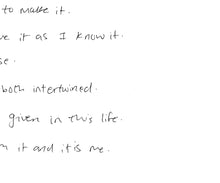 to make it.
ve it as I know it.
se.
both intertwined.
given in this life.
m it and it is me.